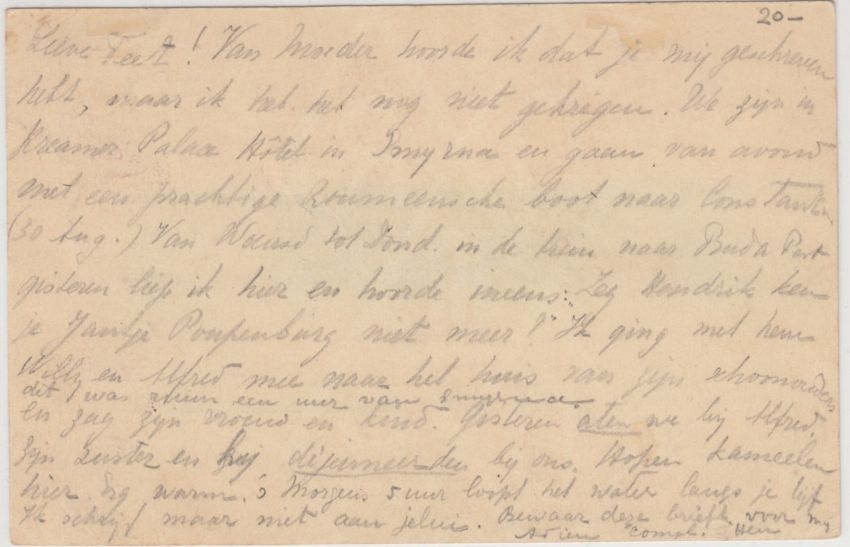 20-
Lieve Feet! Van Moeder hoorde ik dat je mij geschreven
hebt, maar ik heb het nog niet gekregen. We zijn in
Kreamer Palace Hôtel in Smyrna en gaan van avond
met een prachtige Roumeensche boot naar Constantin
(30 Aug.) Van Woensd tot Dond. in de trein naar Buda Pest
gisteren liep ik hier en hoorde ineens: "Zeg Hendrik ken
je Jantje Poupenburg niet meer?" Ik ging met hem
Willy en Alfred mee naar het huis van zijn schoonouders
dit was ruim een uur van Smyrna
en zag zijn vrouw en kind. Gisteren aten we bij Alfred.
zijn zuster en hij dejeuneerden bij ons. Hopen kameelen
hier. Erg warm. 's Morgens 5 uur loopt het water langs je lijf
Ik schrijf maar niet aan jelui. Bewaar deze briefk. voor mij
Adieu compl. Hen